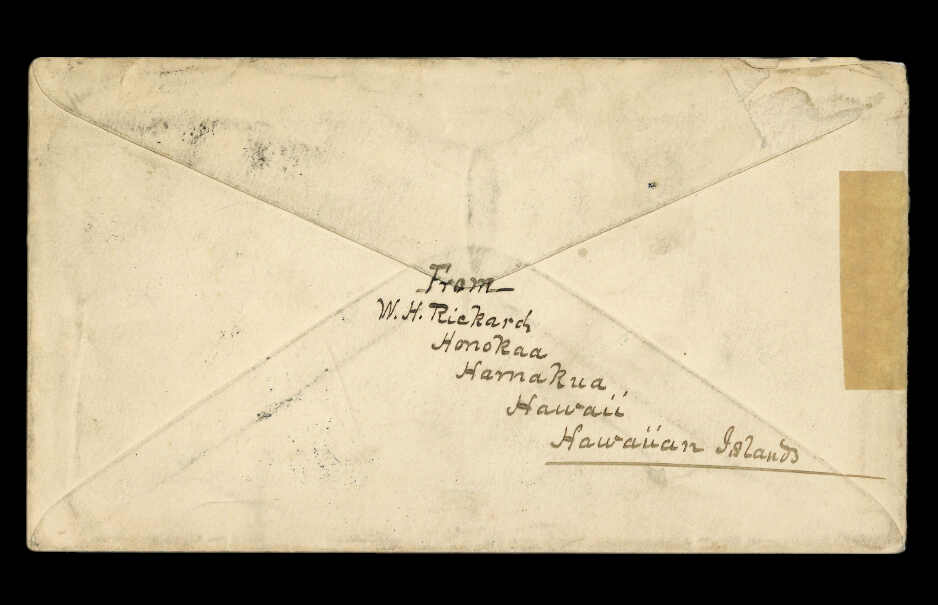 From
W. H. Rickard
Honokaa
Hamakua
Hawaii
Hawaiian Islands